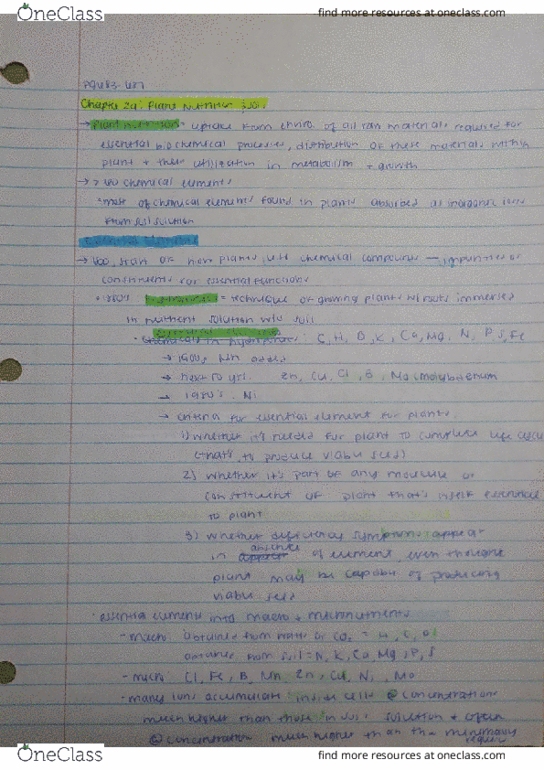 OneClass
find more resources at oneclass.com
Pg 683-687
Chapter 29: Plant Nutrition & Soil
→ Plant nutrition = uptake from enviro. of all raw materials required for
essential biochemical processes, distribution of these materials within
plant + their utilization in metabolism + growth
→ > 60 chemical elements
most of chemical elements found in plants absorbed as inorganic ions
from soil solution
Essential Elements
→ 1800, scan on how plants use chemical compounds — impurities or
constituents for essential functions
= technique of growing plants w/ roots immersed
in nutrient solution w/o soil
chemicals in hydroponics: C, H, O, K, Ca, Mg, N, P, S, Fe
→ 1900s Mn added
→ next 50 yrs: Zn, Cu, Cl, B, Mo (molybdenum
→ 1980's: Ni
→ criteria for essential element for plants.
1) whether it's needed for plant to complete life cycle
(that's, to produce viable seeds)
2) whether it's part of any molecule or
constituent of plant that's itself essential
to plant
3) whether deficiency symptoms appear
in absence of element, even though
plant may be capable of producing
viable seeds
essential elements into macro + micronutrients
- macro: obtained from water or CO₂ = H, C, O
obtained from soil = N, K, Ca, Mg, P, S
- micro: Cl, Fe, B, Mn, Zn, Cu, Ni, Mo
- many ions accumulate inside cells @ concentrations
much higher than those in soil solution + often
@ concentration much higher than the minimum
OneClass
find more resources at oneclass.com